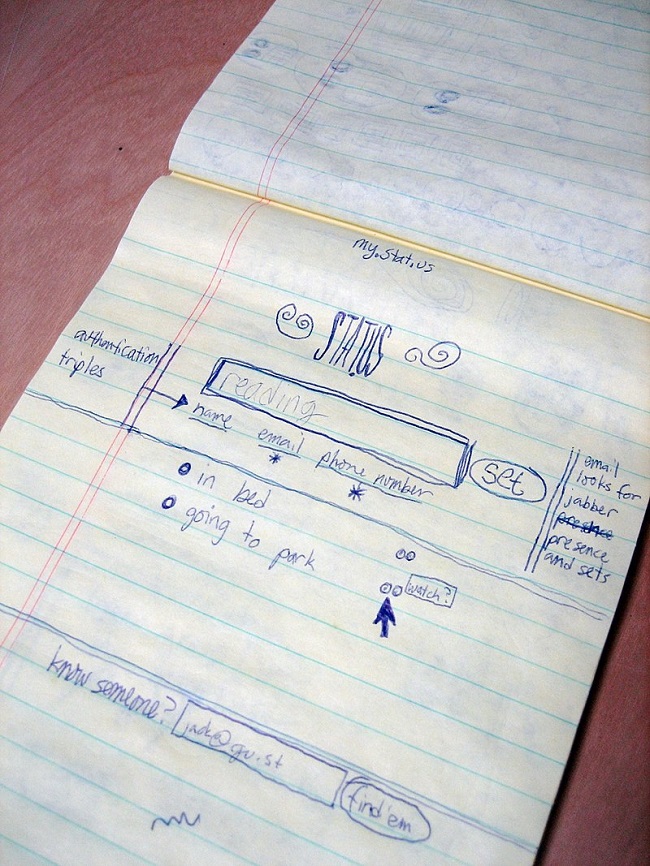 my.stat.us
STAT.US
authentication
triples
reading
name
email
phone number
set
email
looks for
jabber
presence
presence
and sets
in bed
going to park
watch?
know someone?
jack@gu.st
find 'em